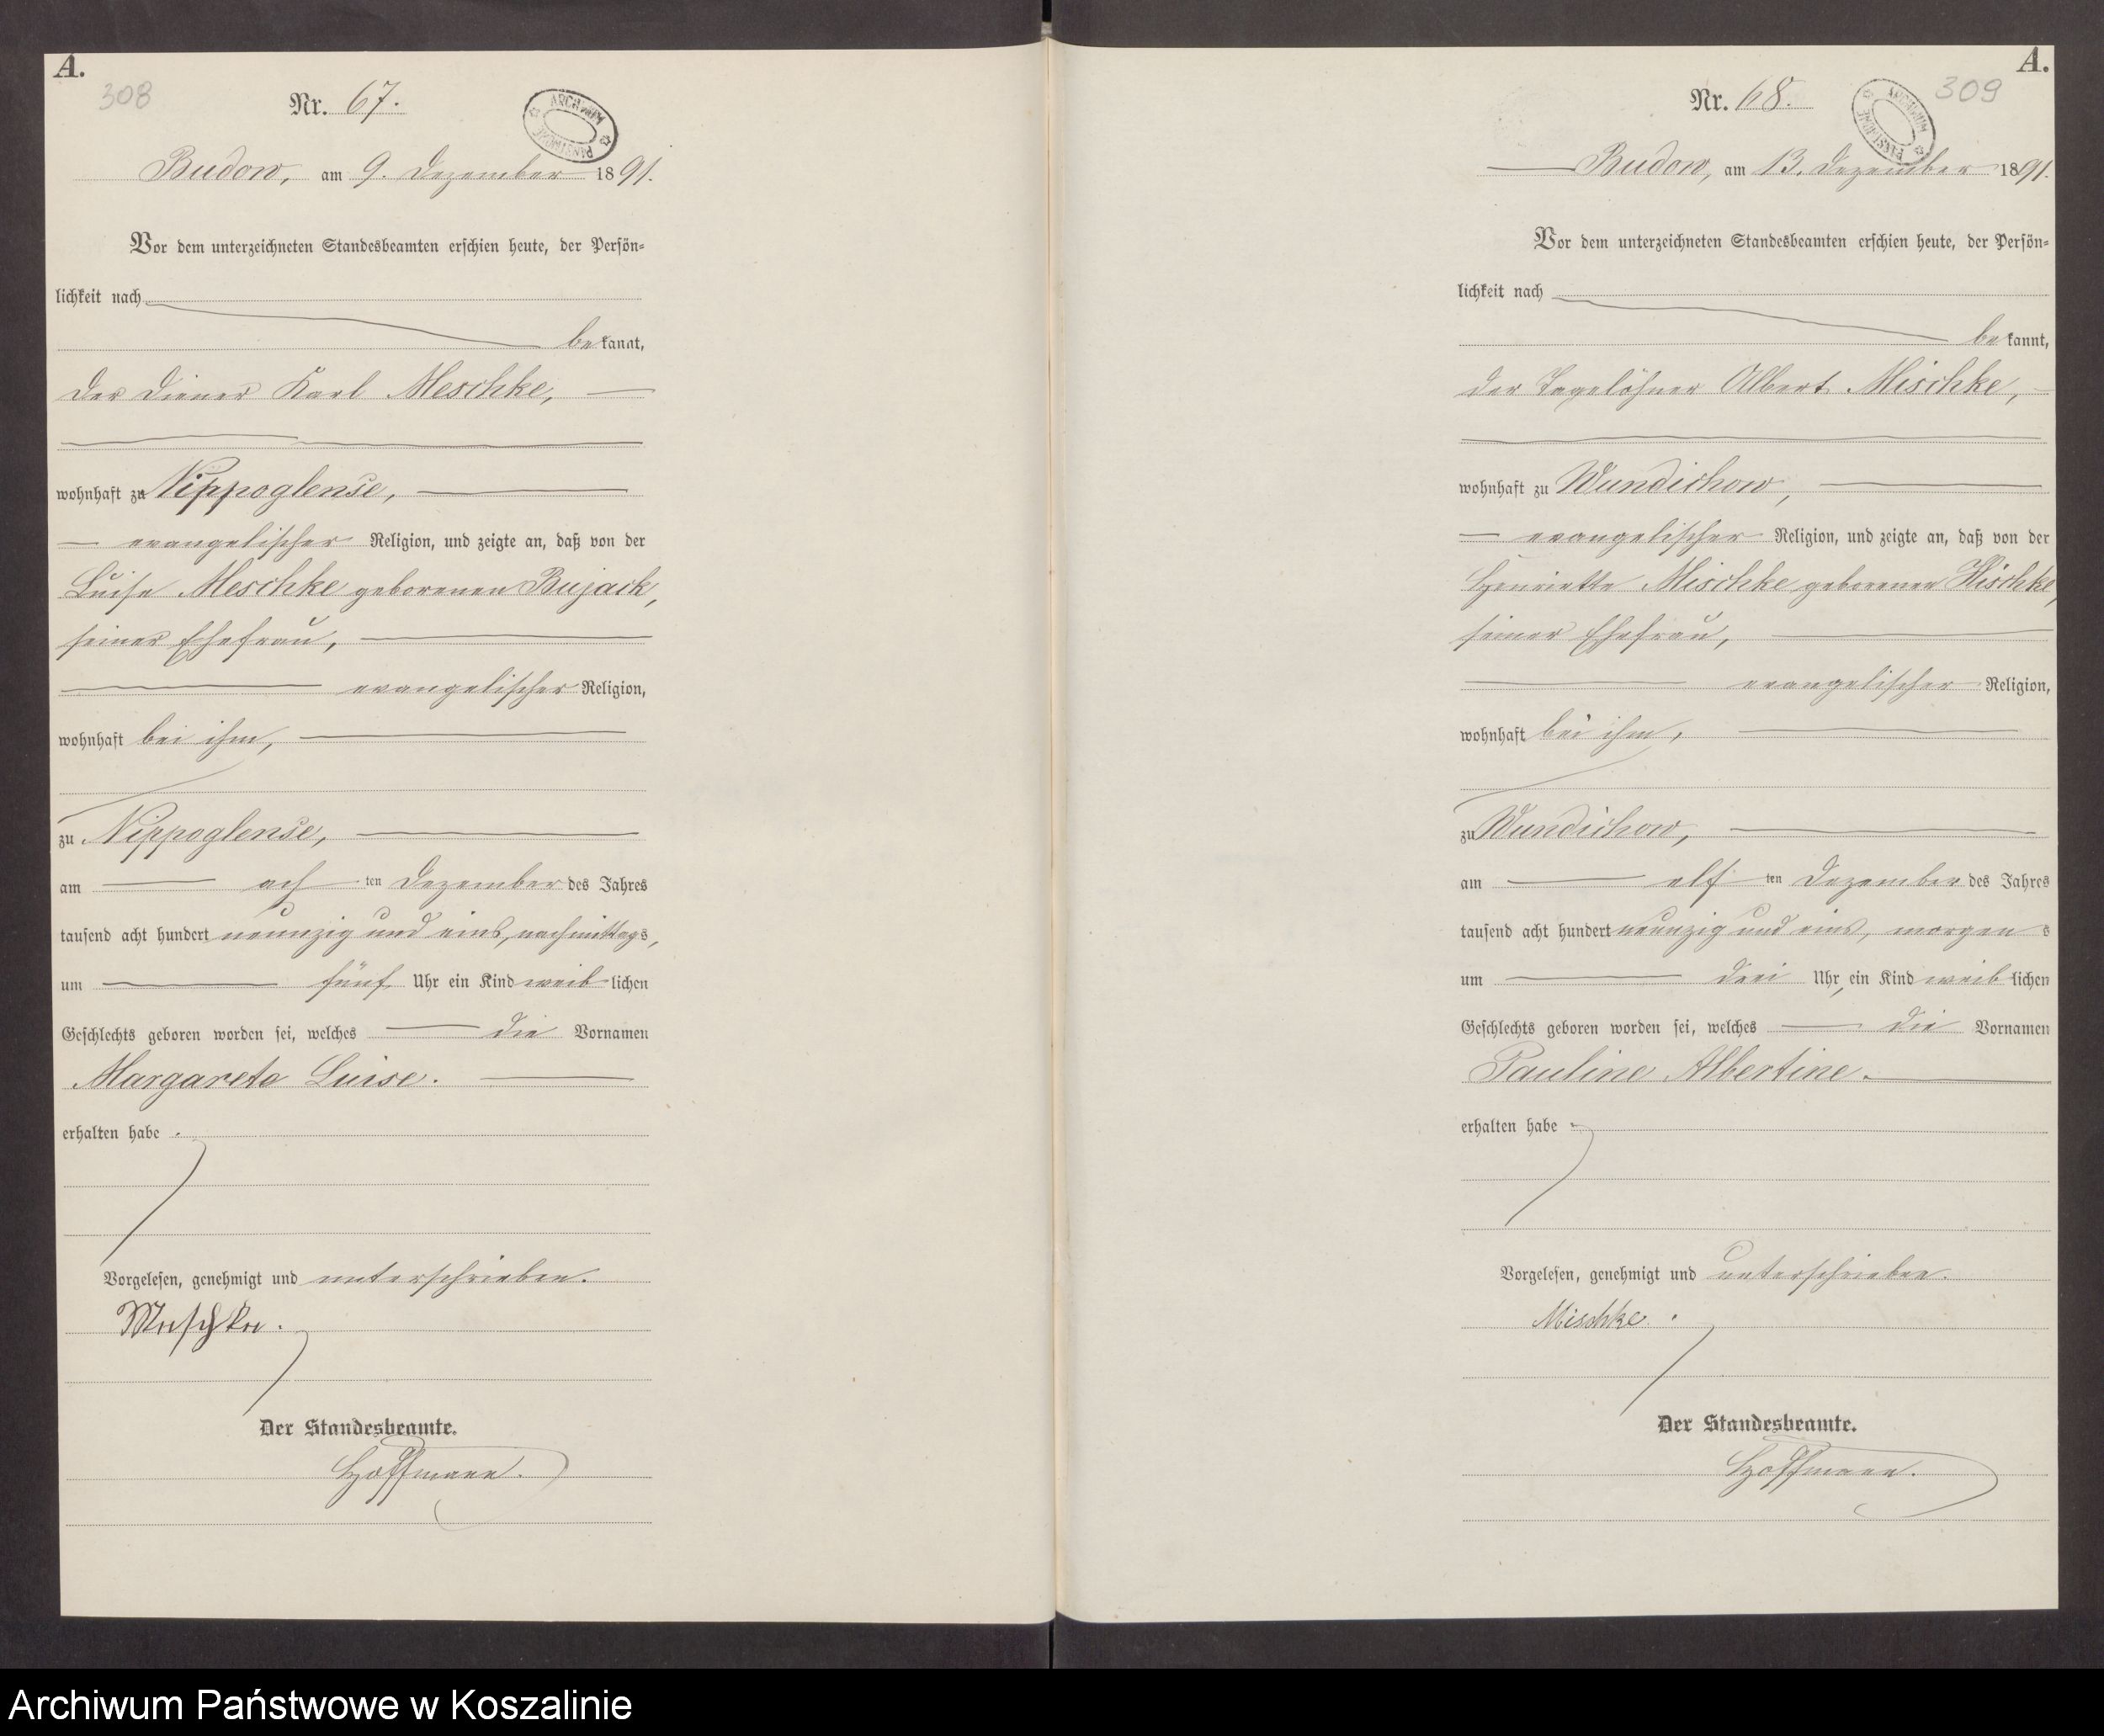 A.
308
Nr. 67.
ARCHIWUM PAŃSTWOWE
Budow, am 9. Dezember 1891.
Vor dem unterzeichneten Standesbeamten erschien heute, der Persön-
lichkeit nach
bekannt,
der Diener Karl Meschke,
wohnhaft zu Nippoglense,
evangelischer Religion, und zeigte an, daß von der
Luise Meschke geborenen Bujack,
seiner Ehefrau,
evangelischer Religion,
wohnhaft bei ihm,
zu Nippoglense,
am ach ten Dezember des Jahres
tausend acht hundert neunzig und eins, nachmittags,
um fünf Uhr ein Kind weiblichen
Geschlechts geboren worden sei, welches die Vornamen
Margareta Luise.
erhalten habe.
Vorgelesen, genehmigt und unterschrieben.
Meschke.
Der Standesbeamte.
Hoffmann.
A.
309
Nr. 68.
ARCHIWUM PAŃSTWOWE
Budow, am 13. Dezember 1891.
Vor dem unterzeichneten Standesbeamten erschien heute, der Persön-
lichkeit nach
bekannt,
der Tagelöhner Albert Mischke,
wohnhaft zu Wundichow,
evangelischer Religion, und zeigte an, daß von der
Henriette Mischke geborenen
seiner Ehefrau,
evangelischer Religion,
wohnhaft bei ihm,
zu Wundichow,
am elf ten Dezember des Jahres
tausend acht hundert neunzig und eins, morgens
um drei Uhr, ein Kind weiblichen
Geschlechts geboren worden sei, welches die Vornamen
Pauline Albertine.
erhalten habe
Vorgelesen, genehmigt und unterschrieben.
Mischke.
Der Standesbeamte.
Hoffmann.
Archiwum Państwowe w Koszalinie